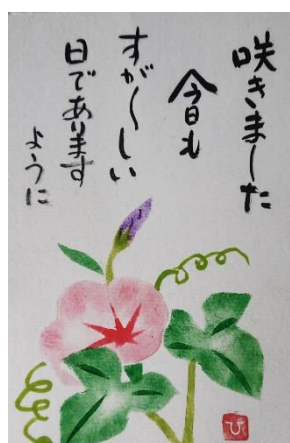 咲きました
今日も
すが〳〵しい
日であります
ように
ひ